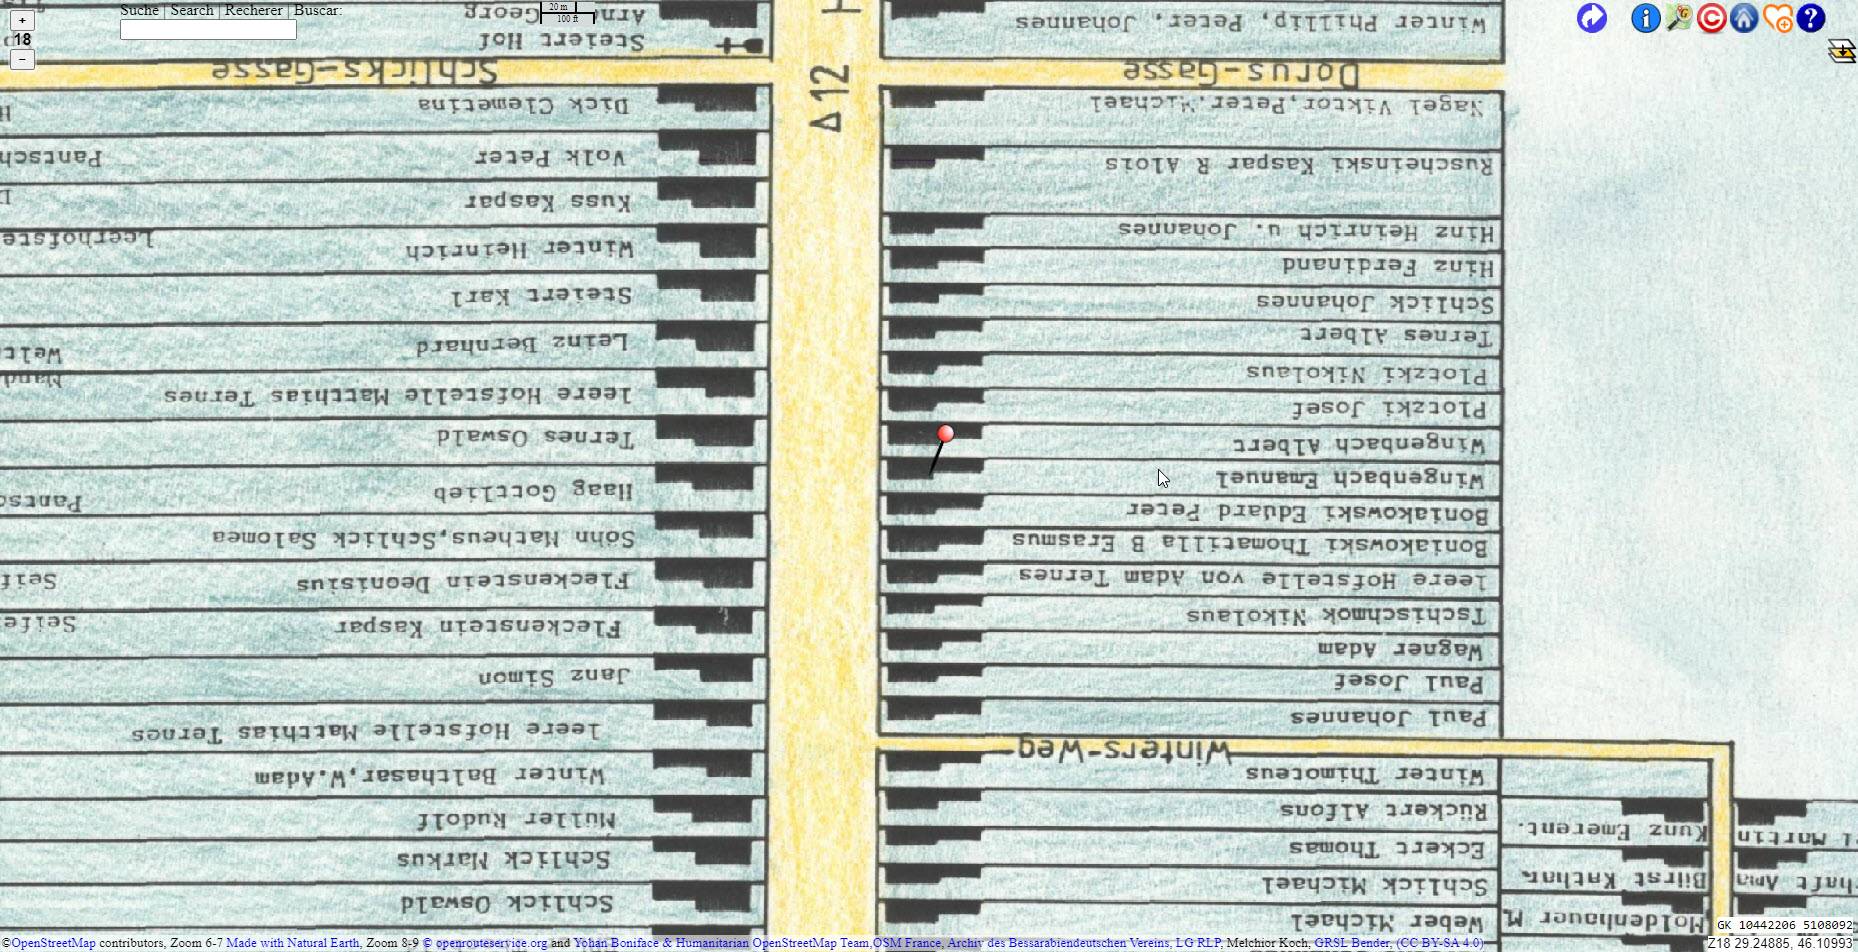 Suche | Search | Recherer | Buscar:
+
18
−
20 m
100 ft
Georg
Steiert Hof
Winter Phillip, Peter, Johannes
Schlicks-Gasse
Δ12
Dorus-Gasse
Dick Clemetina
Volk Peter
Kuss Kaspar
Winter Heinrich
Steiert Karl
Leinz Bernhard
leere Hofstelle Matthias Ternes
Ternes Oswald
Haag Gottlieb
Söhn Matheus, Schlick Salomea
Fleckenstein Deonisius
Fleckenstein Kaspar
Janz Simon
leere Hofstelle Matthias Ternes
Winter Balthasar, W. Adam
Müller Rudolf
Schlick Markus
Schlick Oswald
Nagel Viktor, Peter, Michael
Ruscheinski Kaspar R Alois
Hinz Heinrich u. Johannes
Hinz Ferdinand
Schlick Johannes
Ternes Albert
Plotzki Nikolaus
Plotzki Josef
Wingenbach Albert
Wingenbach Emanuel
Boniakowski Eduard Peter
Boniakowski Thomatilla B Erasmus
leere Hofstelle von Adam Ternes
Tschischmok Nikolaus
Wagner Adam
Paul Josef
Paul Johannes
Winters-Weg
Winter Thimoteus
Rückert Alfons
Eckert Thomas
Schlick Michael
Weber Michael
Kunz Emerent.
Bilrst Kathar.
Moldenhauer M
Martin
Pantsch
Leerhofste
Welt
Pants
Seif
Seife
GK 10442206 5108092
©OpenStreetMap contributors, Zoom 6-7 Made with Natural Earth, Zoom 8-9 © openrouteservice.org and Yohan Boniface & Humanitarian OpenStreetMap Team,OSM France, Archiv des Bessarabiendeutschen Vereins, LG RLP, Melchior Koch, GRSL Bender, (CC BY-SA 4.0)
Z18 29.24885, 46.10993